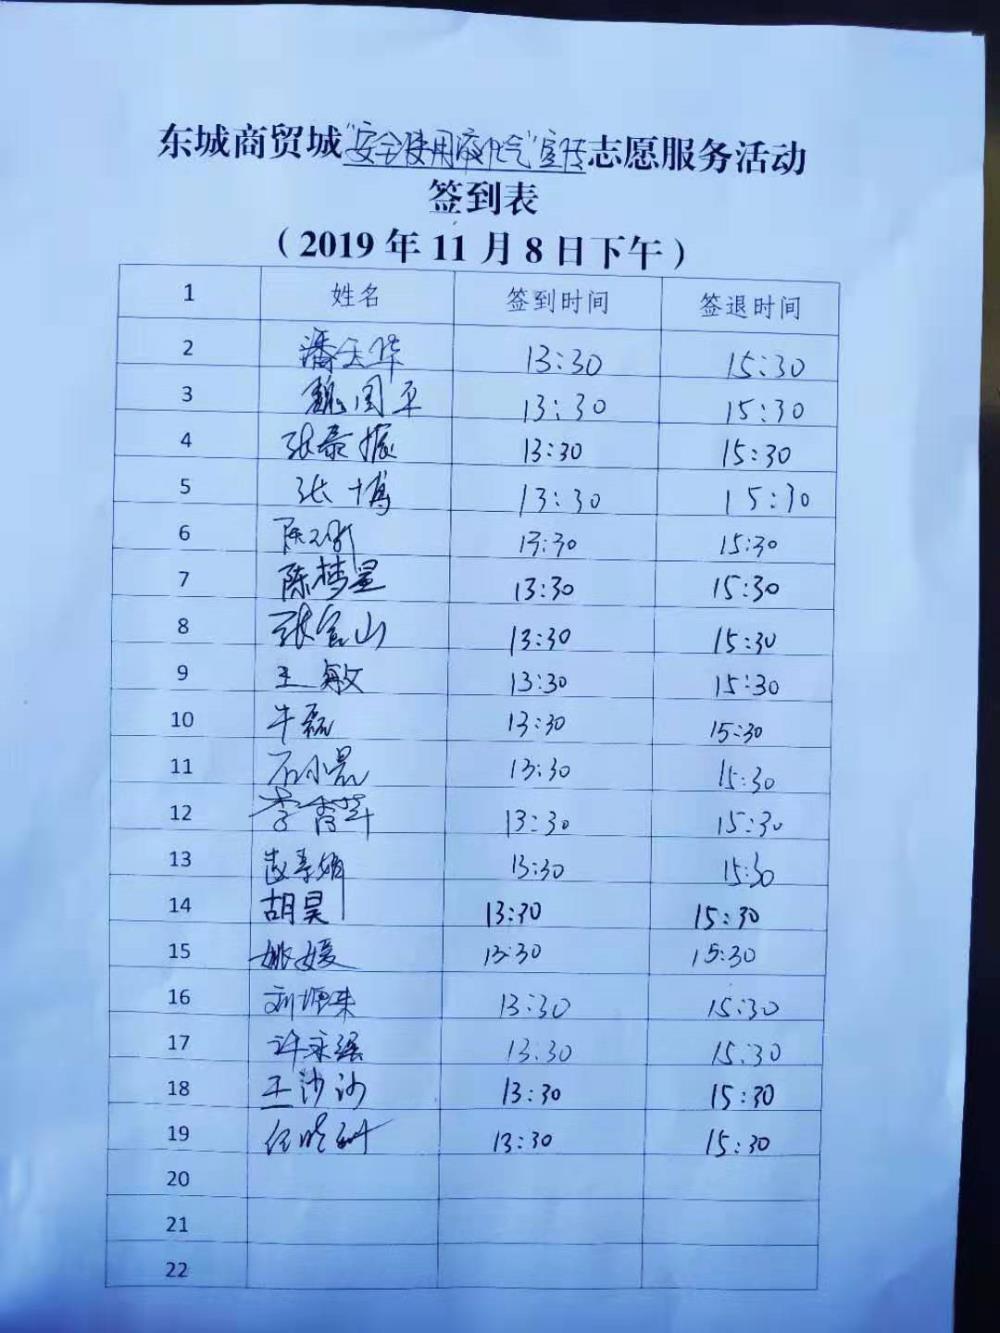 东城商贸城“安全使用液化气”宣传志愿服务活动
签到表
（2019年11月8日下午）
1 姓名 签到时间 签退时间
2 潘全华 13:30 15:30
3 魏国平 13:30 15:30
4 张泰振 13:30 15:30
5 张博 13:30 15:30
6 13:30 15:30
7 陈梦星 13:30 15:30
8 张官山 13:30 15:30
9 王敏 13:30 15:30
10 牛磊 13:30 15:30
11 石小晨 13:30 15:30
12 李 13:30 15:30
13 13:30 15:30
14 胡昊 13:30 15:30
15 姚媛 13:30 15:30
16 刘 13:30 15:30
17 许永强 13:30 15:30
18 王沙沙 13:30 15:30
19 任晓 13:30 15:30
20
21
22